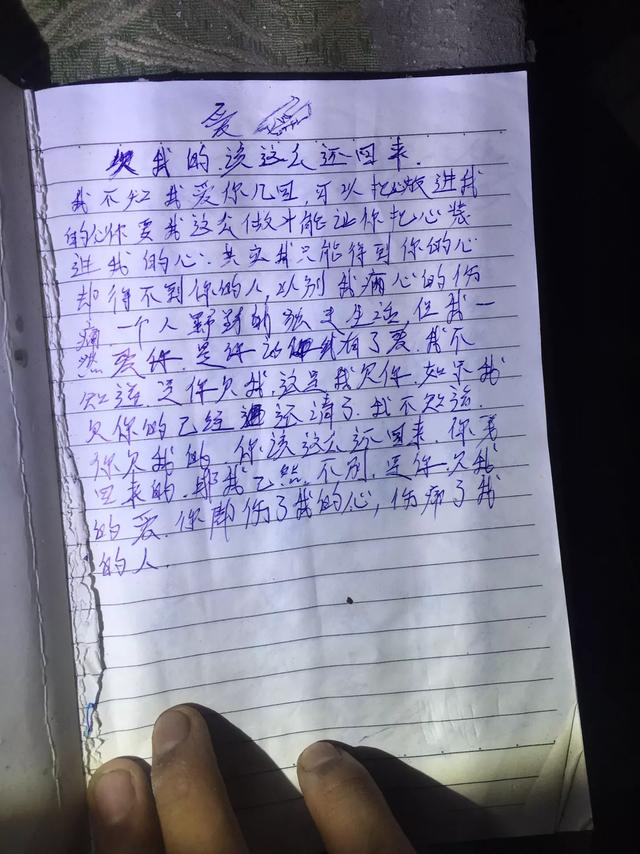 爱
欠我的.该这么还回来.
我不知我爱你几回,可以把心放进我
的心你要我这么做才能让你把心装
进我的心.其实我只能得到你的心
却得不到你的人,以别我痛心的伤
痛.一个人 的 生活,但我一
然爱你.是你 我有了爱.我不
知道.是你欠我,这是我欠你.如果我
欠你的已经 还清了.我不知该.
你欠我的.你该这么还回来.你要
回来的.那我已然不别.是你欠我
的爱.你却伤了我的心,伤痛了我
的人.